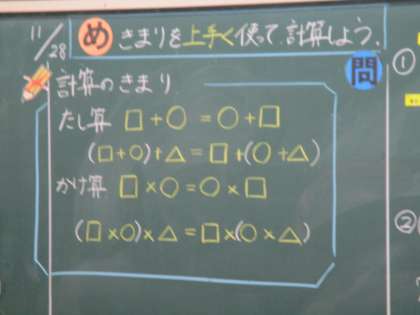 11/28
め きまりを上手く使って、計算しよう。
問
①
計算のきまり
たし算 □+○=○+□
(□+○)+△=□+(○+△)
かけ算 □×○=○×□
(□×○)×△=□×(○×△)
②